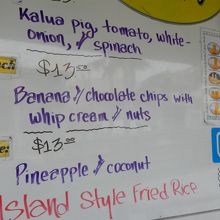 Kalua pig, tomato, white-
onion, // spinach
$13.50
Banana // chocolate chips with
whip cream // nuts
$13.00
Pineapple // coconut
Island Style Fried Rice